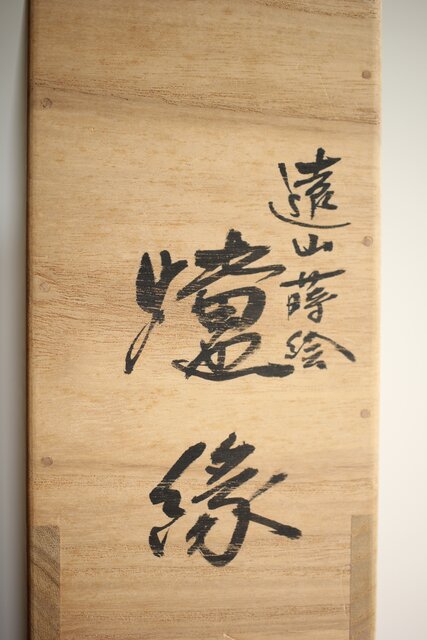 遠山蒔絵
爐縁